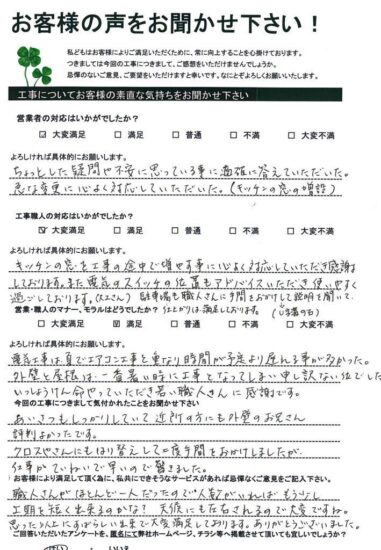 お客様の声をお聞かせ下さい！
私どもはお客様によりご満足いただくために、常に向上することを心掛けております。
つきましては今回の工事につきまして、ご感想をいただけませんでしょうか。
忌憚のないご意見、ご要望をいただけますと幸いです。なにとぞよろしくお願いいたします。
工事についてお客様の素直な気持ちをお聞かせ下さい
営業者の対応はいかがでしたか？
☑ 大変満足 □ 満足 □ 普通 □ 不満 □ 大変不満
よろしければ具体的にお願いします。
ちょっとした疑問や不安に思っている事に適確に答えていただいた。
急な変更に心よく対応していただいた。(キッチンの窓の増設)
工事職人の対応はいかがでしたか？
☑ 大変満足 □ 満足 □ 普通 □ 不満 □ 大変不満
よろしければ具体的にお願いします。
キッチンの窓を工事の途中で増やす事に心よく対応していただき感謝
しております。また電気のスイッチの位置もアドバイスいただき使いやすく
過ごしております。(大工さん) 駐車場も職人さんに手間をおかけして説明を聞いて、
営業・職人のマナー、モラルはどうでしたか？ 仕上がりは満足しております。
□ 大変満足 ☑ 満足 □ 普通 □ 不満 □ 大変不満
よろしければ具体的にお願いします。
電気工事は夏でエアコン工事と重なり時間が予定より遅れる事が多かった。
外壁と屋根は一番暑い時に工事となってしまい申し訳ない位でした
いっしょうけん命やっていただき若い職人さんに感謝です。
今回の工事につきまして気付かれたことをお聞かせ下さい
あいさつもしっかりしていて近所の方にも外壁のお兄さん
評判よかったです。
クロスやさんにもはり替えして二度手間をおかけしましたが、
仕事がていねいで早いので驚きました。
お客様により満足して頂く為に、私共にできそうなサービスがあれば忌憚なくご意見をご記入下さい。
職人さんがほとんど一人だったので人数がいればもう少し
工期を短く出来るのかな? 天候にも左右されるので大変ですね。
思った以上にすばらしい出来で大変満足しております。ありがとうございました。
ご回答いただいたアンケートを、匿名にて弊社ホームページ、チラシ等へ掲載させて頂いても宜しいでしょうか？